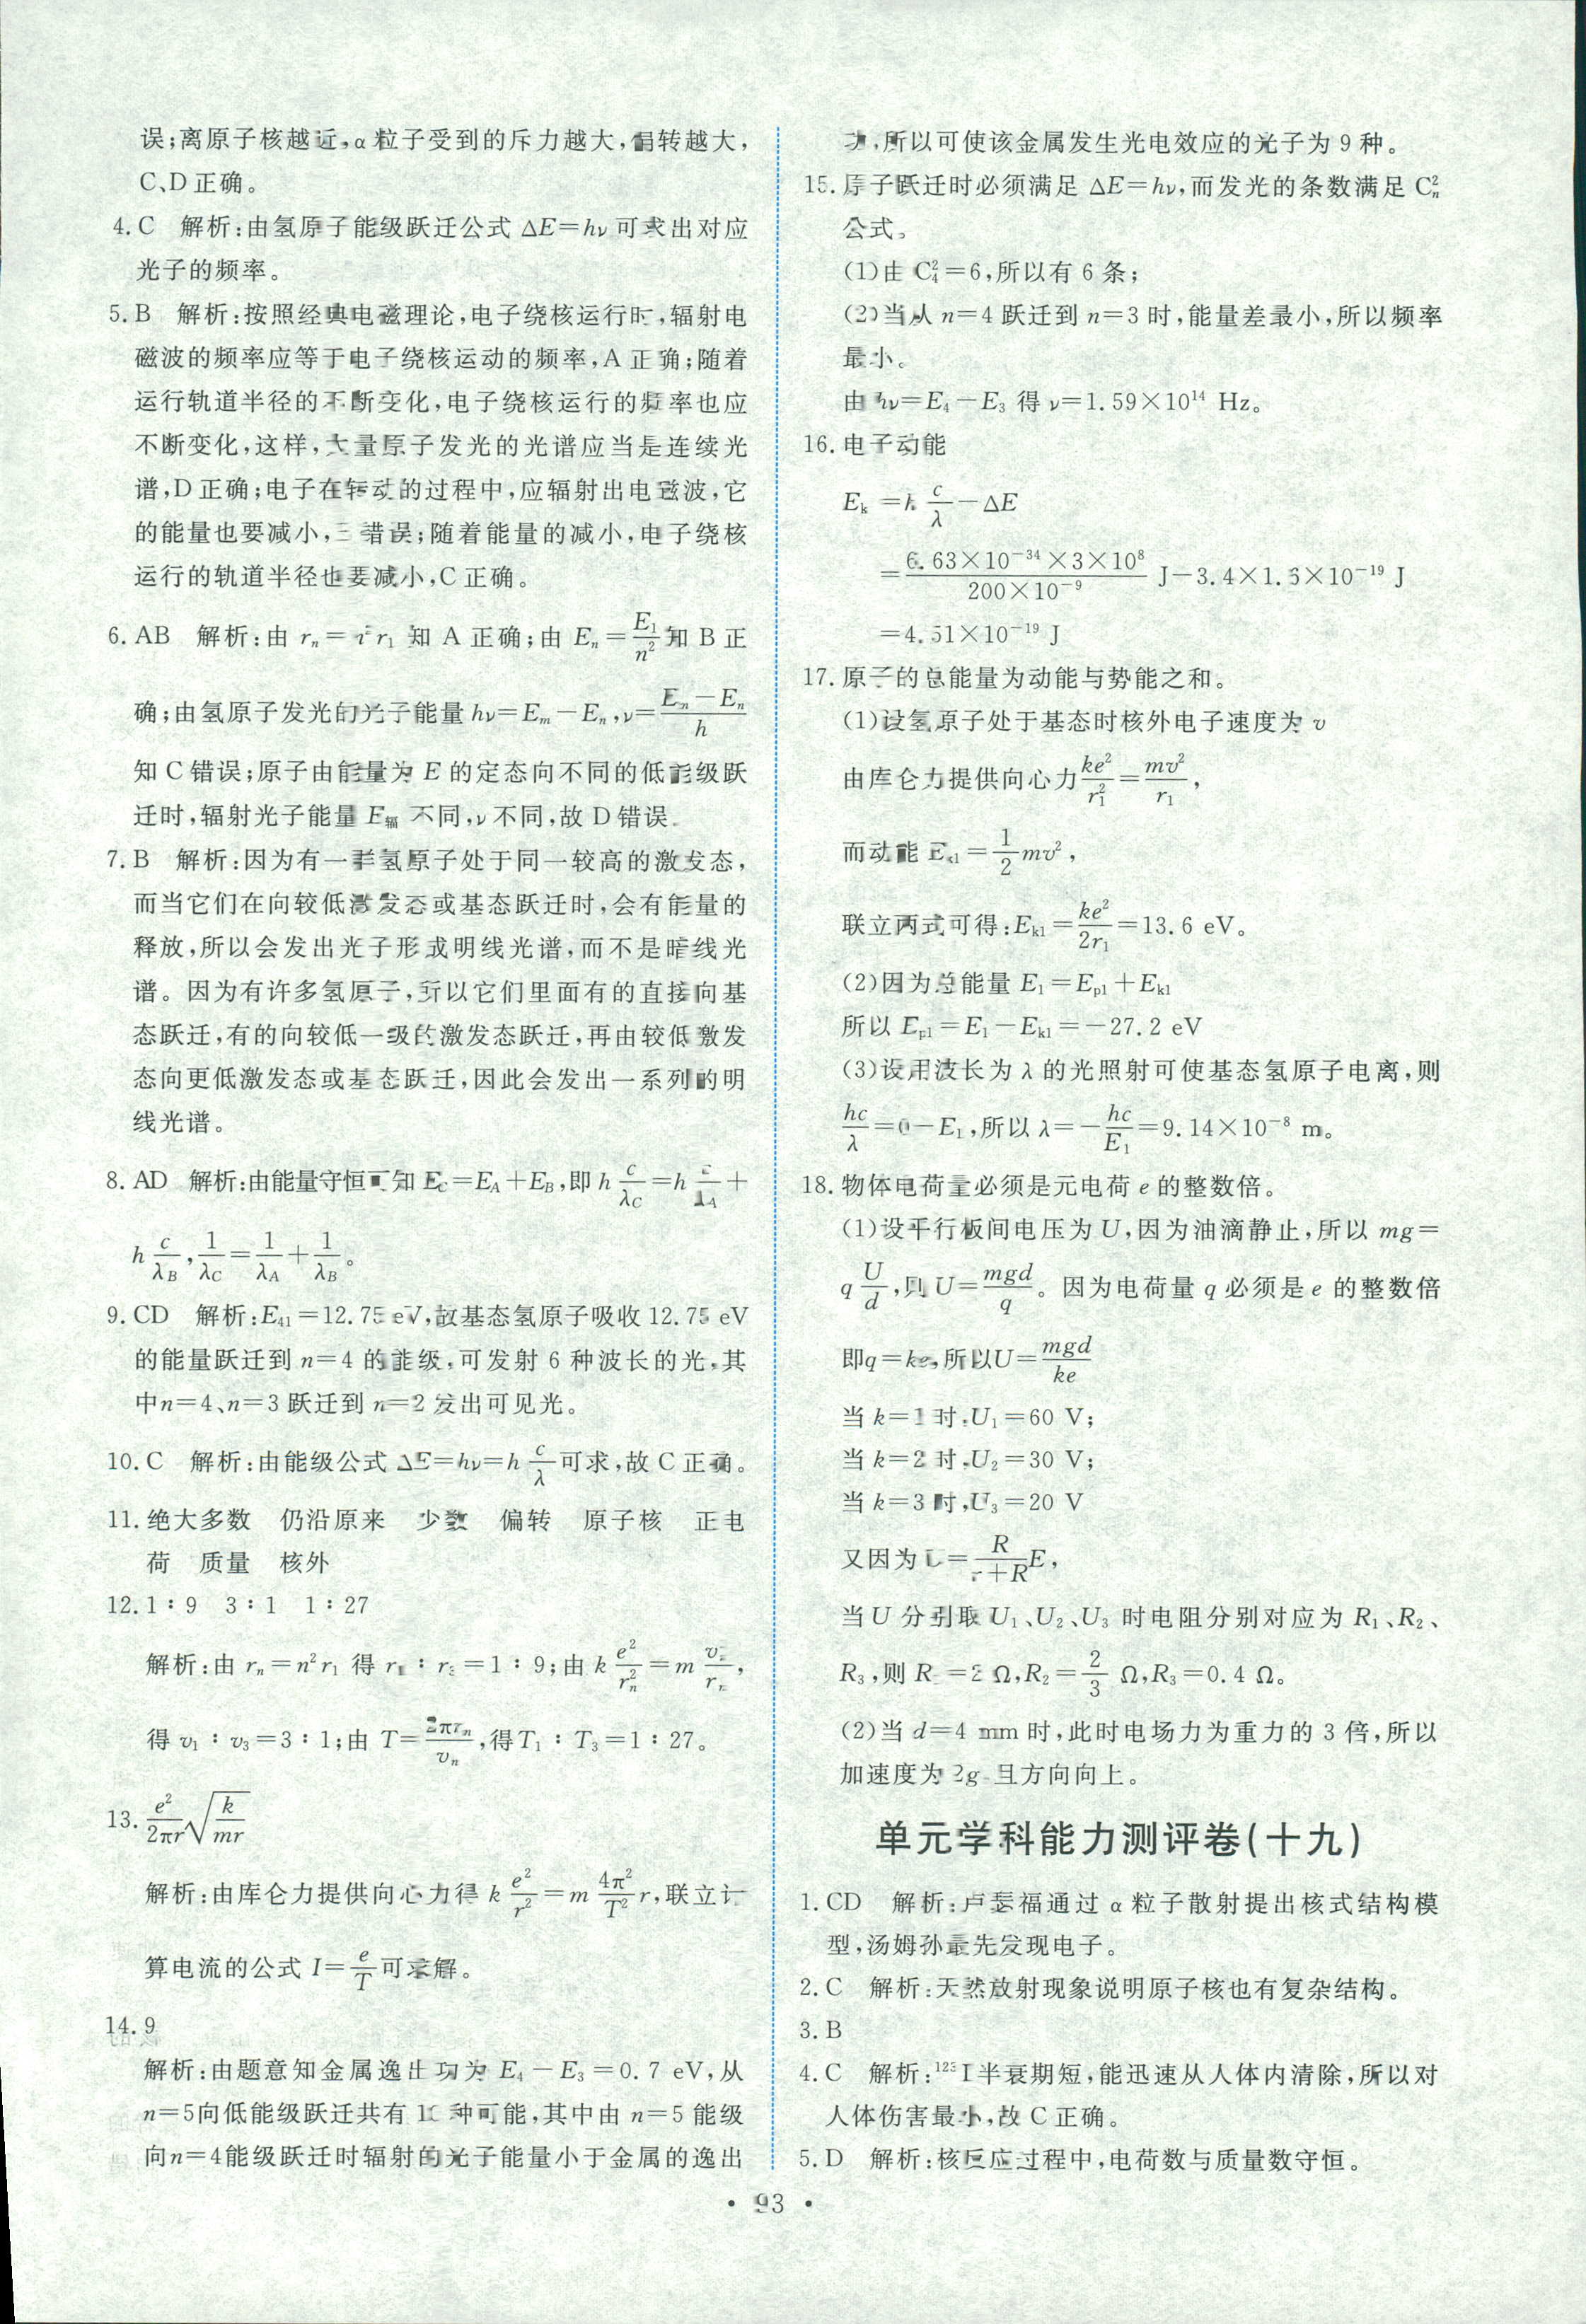 误;离原子核越近,α粒子受到的斥力越大,偏转越大,
C、D正确。
4.C 解析:由氢原子能级跃迁公式 ΔE=hν可求出对应
光子的频率。
5.B 解析:按照经典电磁理论,电子绕核运行时,辐射电
磁波的频率应等于电子绕核运动的频率,A正确;随着
运行轨道半径的不断变化,电子绕核运行的频率也应
不断变化,这样,大量原子发光的光谱应当是连续光
谱,D正确;电子在转动的过程中,应辐射出电磁波,它
的能量也要减小, 错误;随着能量的减小,电子绕核
运行的轨道半径也要减小,C正确。
6.AB 解析:由 rₙ=n²r₁ 知 A 正确;由 Eₙ=E₁/n²知 B 正
确;由氢原子发光的光子能量hν=Eₘ-Eₙ,ν=(Eₘ-Eₙ)/h
知C错误;原子由能量为 E 的定态向不同的低能级跃
迁时,辐射光子能量 E辐 不同,ν不同,故D错误。
7.B 解析:因为有一群氢原子处于同一较高的激发态,
而当它们在向较低激发态或基态跃迁时,会有能量的
释放,所以会发出光子形成明线光谱,而不是暗线光
谱。因为有许多氢原子,所以它们里面有的直接向基
态跃迁,有的向较低一级的激发态跃迁,再由较低激发
态向更低激发态或基态跃迁,因此会发出一系列的明
线光谱。
8.AD 解析:由能量守恒可知 E_C=E_A+E_B,即 h c/λ_C=h c/λ_A+
h c/λ_B,1/λ_C=1/λ_A+1/λ_B。
9.CD 解析:E₄₁=12.75 eV,故基态氢原子吸收12.75 eV
的能量跃迁到 n=4 的能级,可发射 6 种波长的光,其
中n=4、n=3跃迁到 n=2发出可见光。
10.C 解析:由能级公式 ΔE=hν=h c/λ可求,故C正确。
11.绝大多数 仍沿原来 少数 偏转 原子核 正电
荷 质量 核外
12.1∶9 3∶1 1∶27
解析:由 rₙ=n²r₁ 得 r₁∶r₃=1∶9;由 k e²/rₙ²=m vₙ²/rₙ,
得 v₁∶v₃=3∶1;由 T=2πrₙ/vₙ,得T₁∶T₃=1∶27。
13. e²/(2πr) √(k/(mr))
解析:由库仑力提供向心力得 k e²/r²=m 4π²/T² r,联立计
算电流的公式 I=e/T可求解。
14.9
解析:由题意知金属逸出功为 E₄-E₃=0.7 eV,从
n=5向低能级跃迁共有 10 种可能,其中由 n=5 能级
向n=4能级跃迁时辐射的光子能量小于金属的逸出
功,所以可使该金属发生光电效应的光子为9种。
15.原子跃迁时必须满足 ΔE=hν,而发光的条数满足 C²ₙ
公式。
(1)由 C²₄=6,所以有6条;
(2)当从 n=4跃迁到 n=3时,能量差最小,所以频率
最小。
由 hν=E₄-E₃ 得 ν=1.59×10¹⁴ Hz。
16.电子动能
Eₖ=h c/λ-ΔE
=(6.63×10⁻³⁴×3×10⁸)/(200×10⁻⁹) J-3.4×1.6×10⁻¹⁹ J
=4.51×10⁻¹⁹ J
17.原子的总能量为动能与势能之和。
(1)设氢原子处于基态时核外电子速度为 v
由库仑力提供向心力ke²/r₁²=mv²/r₁,
而动能 Eₖ₁=1/2 mv²,
联立两式可得:Eₖ₁=ke²/2r₁=13.6 eV。
(2)因为总能量 E₁=Eₚ₁+Eₖ₁
所以 Eₚ₁=E₁-Eₖ₁=-27.2 eV
(3)设用波长为 λ 的光照射可使基态氢原子电离,则
hc/λ=0-E₁,所以 λ=-hc/E₁=9.14×10⁻⁸ m。
18.物体电荷量必须是元电荷 e 的整数倍。
(1)设平行板间电压为 U,因为油滴静止,所以 mg=
q U/d,则 U=mgd/q。因为电荷量 q 必须是 e 的整数倍
即q=ke,所以U=mgd/ke
当 k=1时,U₁=60 V;
当 k=2时,U₂=30 V;
当 k=3时,U₃=20 V
又因为 U=R/(r+R)E,
当U 分别取 U₁、U₂、U₃ 时电阻分别对应为 R₁、R₂、
R₃,则 R₁=2 Ω,R₂=2/3 Ω,R₃=0.4 Ω。
(2)当 d=4 mm 时,此时电场力为重力的 3 倍,所以
加速度为 2g 且方向向上。
单元学科能力测评卷(十九)
1.CD 解析:卢瑟福通过 α 粒子散射提出核式结构模
型,汤姆孙最先发现电子。
2.C 解析:天然放射现象说明原子核也有复杂结构。
3.B
4.C 解析:¹²³I半衰期短,能迅速从人体内清除,所以对
人体伤害最小,故C正确。
5.D 解析:核反应过程中,电荷数与质量数守恒。
• 93 •